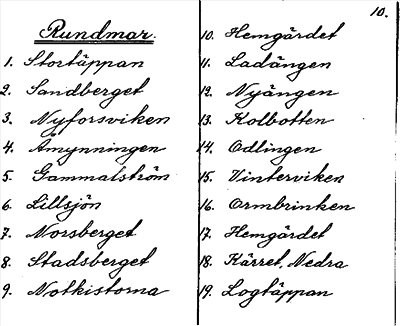 10.
Rundmar.
1. Stortäppan
2. Sandberget
3. Nyforsviken
4. Åmynningen
5. Gammalström
6. Lillsjön
7. Norsberget
8. Stadsberget
9. Notkistorna
10. Hemgärdet
11. Ladängen
12. Nyängen
13. Kolbotten
14. Odlingen
15. Vinterviken
16. Ormbrinken
17. Hemgärdet
18. Kärret, Nedra
19. Logtäppan